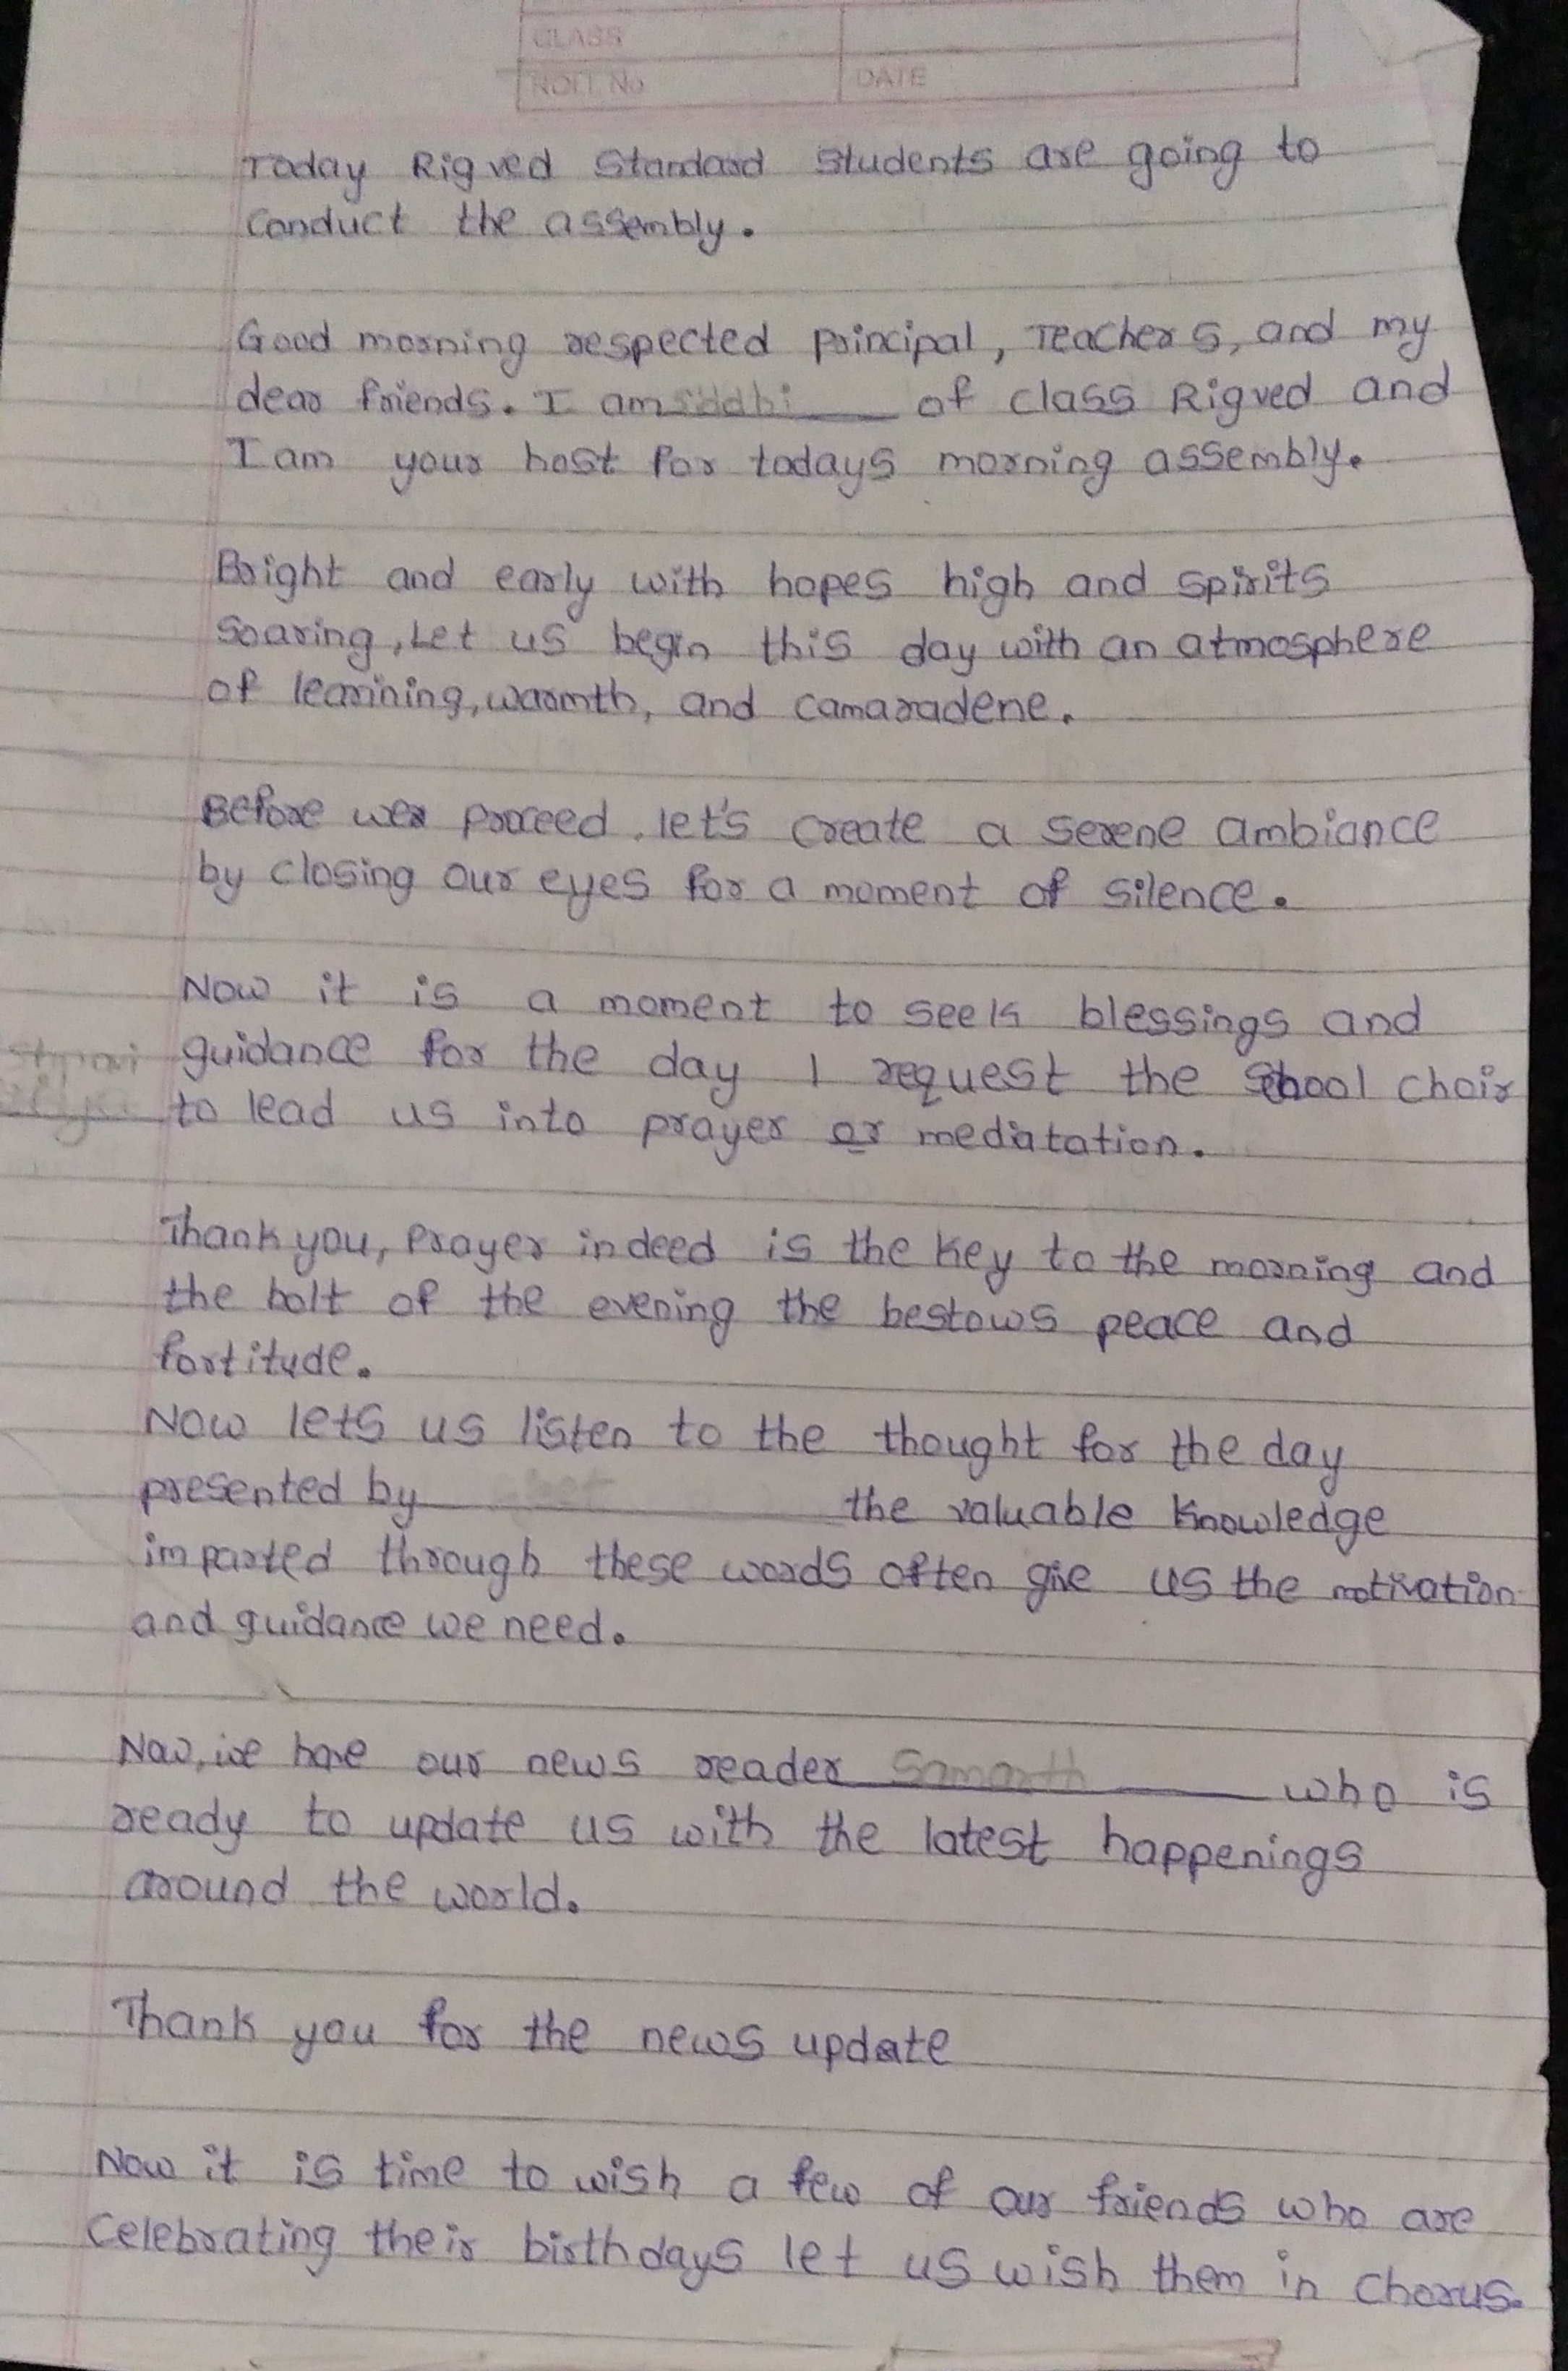 CLASS
ROLL No DATE
Today Rigved Standard students are going to
conduct the assembly.
Good morning respected principal, Teachers, and my
dear friends. I am Siddhi of class Rigved and
I am your host for todays morning assembly.
Bright and early with hopes high and spirits
soaring, Let us begin this day with an atmosphere
of learining, warmth, and camaradene.
Before wer proceed. let's create a serene ambiance
by closing our eyes for a moment of silence.
Now it is a moment to seek blessings and
guidance for the day I request the School choir
to lead us into prayer or mediatation.
Thank you, Prayer indeed is the key to the morning and
the bolt of the evening the bestows peace and
fortitude.
Now lets us listen to the thought for the day
presented by the valuable knowledge
imparted through these words often give us the motivation
and guidance we need.
Now, we have our news reader Samarth who is
ready to update us with the latest happenings
around the world.
Thank you for the news update
Now it is time to wish a few of our friends who are
celebrating their birthdays let us wish them in chorus.